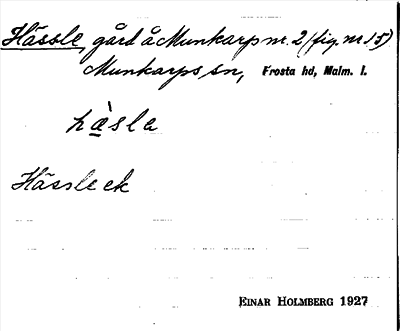 Hässle, gård å Munkarp nr. 2 (fig. nr 15)
Munkarps sn, Frosta hd, Malm. l.
hæ̀sla
Hässleek
EINAR HOLMBERG 1927